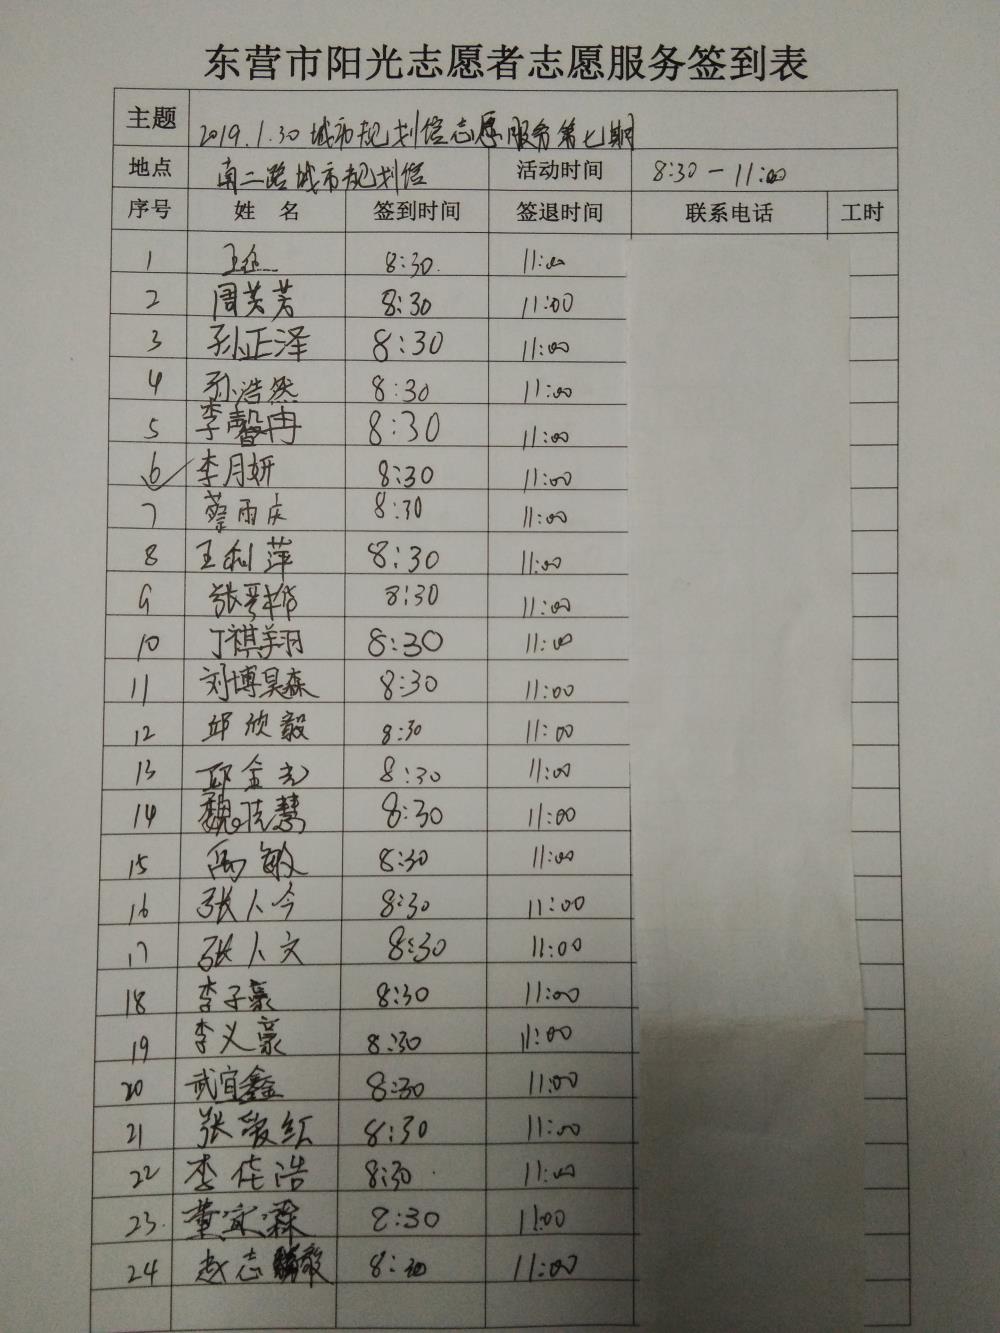 东营市阳光志愿者志愿服务签到表
主题 2019.1.30 城市规划馆志愿服务第七期
地点 南二路城市规划馆 活动时间 8:30-11:00
序号 姓名 签到时间 签退时间 联系电话 工时
1 8:30 11:00
2 周芙芳 8:30 11:00
3 孙正泽 8:30 11:00
4 孙浩然 8:30 11:00
5 李馨冉 8:30 11:00
6 李月妍 8:30 11:00
7 蔡雨庆 8:30 11:00
8 王利萍 8:30 11:00
9 张 8:30 11:00
10 丁祺翔 8:30 11:00
11 刘博昊森 8:30 11:00
12 邱欣毅 8:30 11:00
13 邱金元 8:30 11:00
14 魏晓慧 8:30 11:00
15 禹敏 8:30 11:00
16 张人今 8:30 11:00
17 张人文 8:30 11:00
18 李子豪 8:30 11:00
19 李义豪 8:30 11:00
20 武宜鑫 8:30 11:00
21 张爱红 8:30 11:00
22 李佳浩 8:30 11:00
23 董宜霖 8:30 11:00
24 赵志毅 8:30 11:00